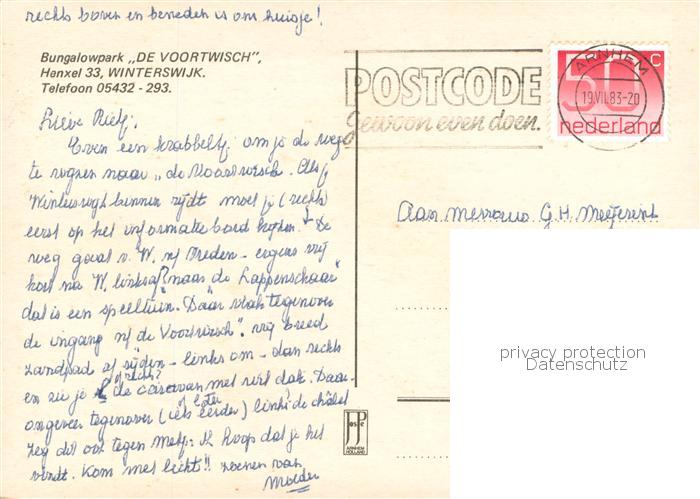 rechts boven en beneden is ons huisje!
Bungalowpark „DE VOORTWISCH”,
Henxel 33, WINTERSWIJK.
Telefoon 05432 - 293.
POSTCODE
gewoon even doen.
ARNHEM
19.VII.83-20
50 c
nederland
Lieve Rietj.
Even een krabbeltj. om je de weg
te wijzen naar „de Voortwisch. Als j
Winterswijk binnen rijdt moet je (rechts
eerst op het informatie bord kijken. De
weg gaat v. W. n/ Vreden - ergens vrij
kort na W. linksaf? naar de Lappenschaar"
dat is een speeltuin. Daar vlak tegenover
de ingang n/ de Voortwisch". vrij breed
zandpad af rijden - links om - dan rechts
of rechts?
en zie je de caravan met riet dak. Daar
ongeveer tegenover (iets eerder) links de châlet
of later
zeg dit ook tegen Ik hoop dat je het
vindt. Kom met licht!! zoenen van
Moeder
Aan Mevrouw G.H.
JosPe
ARNHEM
HOLLAND
privacy protection
Datenschutz